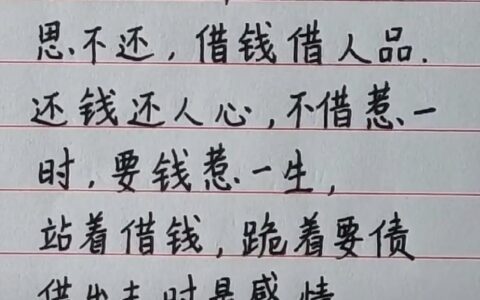 思不还，借钱借人品.
还钱还人心，不借惹一
时，要钱惹一生，
站着借钱，跪着要债
借出去时是感情